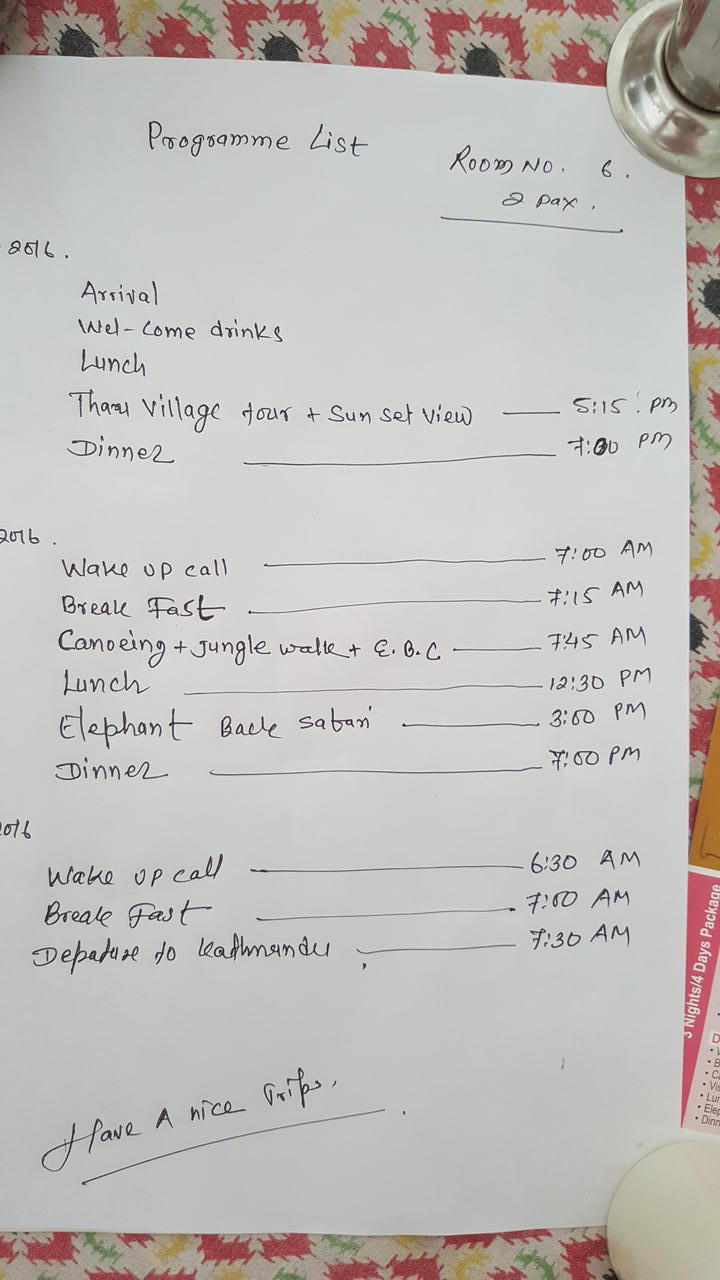 Programme List
Room No. 6.
2 pax.
2016.
Arrival
Wel-come drinks
Lunch
Tharu Village tour + Sun set view — 5:15. PM
Dinner — 7:00 PM
2016.
Wake up call — 7:00 AM
Break Fast — 7:15 AM
Canoeing + Jungle walk + E.B.C — 7:45 AM
Lunch — 12:30 PM
Elephant Back safari — 3:00 PM
Dinner — 7:00 PM
2016
Wake up call — 6:30 AM
Break Fast — 7:00 AM
Depature to Kathmandu — 7:30 AM
Have A nice Trips.
3 Nights/4 Days Package
• Lun
• Elep
• Dinn